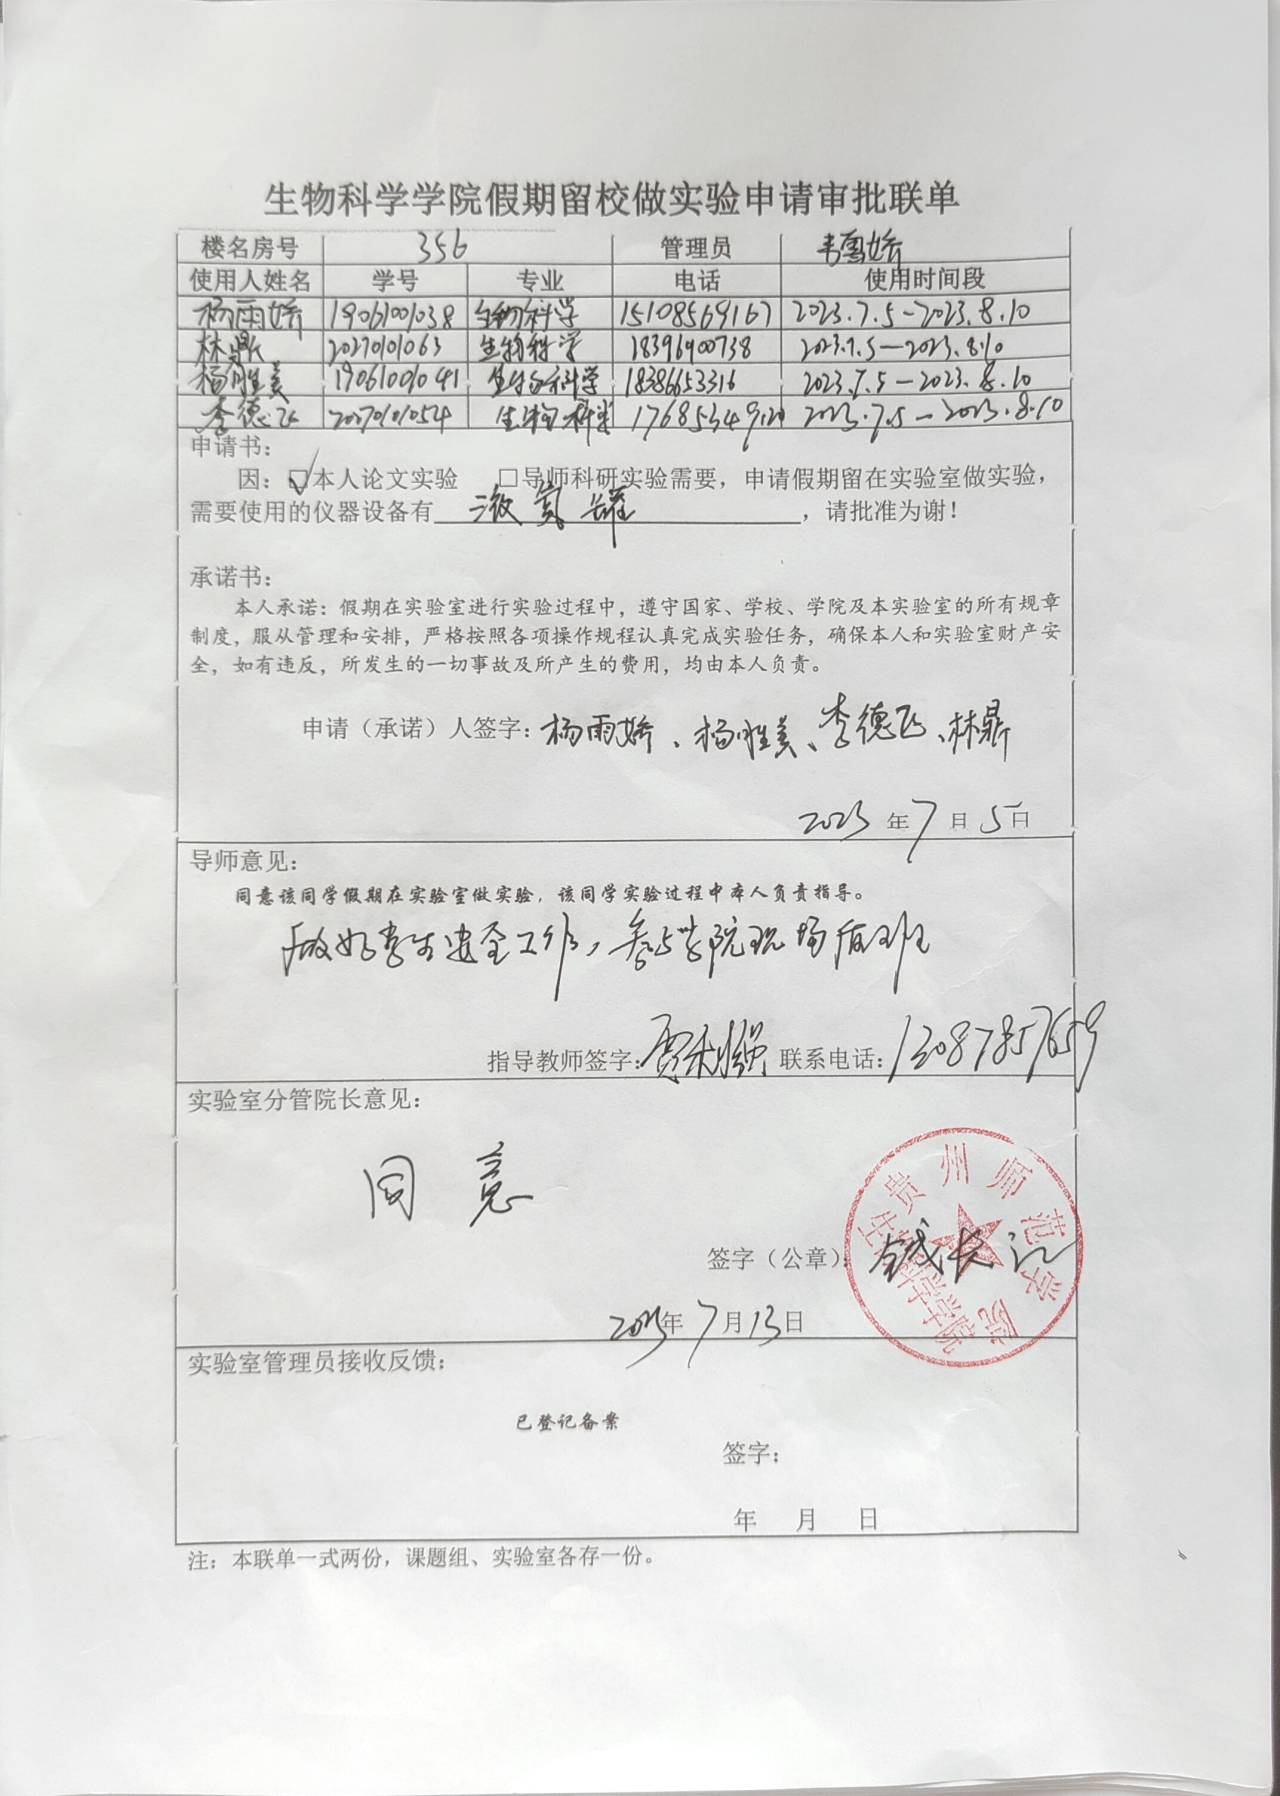 生物科学学院假期留校做实验申请审批联单
楼名房号 356 管理员 韦雪娇
使用人姓名 学号 专业 电话 使用时间段
杨雨娇 19061001038 生物科学 15108569167 2023.7.5-2023.8.10
林鼎 20270101063 生物科学 18396900738 2023.7.5—2023.8.10
杨胜美 19061001041 生物科学 18386653316 2023.7.5—2023.8.10
李德飞 20070101054 生物科学 2023.7.5—2023.8.10
申请书：
因：☑本人论文实验 □导师科研实验需要，申请假期留在实验室做实验，
需要使用的仪器设备有 液氮罐 ，请批准为谢！
承诺书：
本人承诺：假期在实验室进行实验过程中，遵守国家、学校、学院及本实验室的所有规章
制度，服从管理和安排，严格按照各项操作规程认真完成实验任务，确保本人和实验室财产安
全，如有违反，所发生的一切事故及所产生的费用，均由本人负责。
申请（承诺）人签字：杨雨娇、杨胜美、李德飞、林鼎
2023年7月5日
导师意见：
同意该同学假期在实验室做实验，该同学实验过程中本人负责指导。
做好学生安全工作，参与学院现场值班
指导教师签字：贾利强 联系电话：13087857659
实验室分管院长意见：
同意
贵州师范学院
生物科学学院
签字（公章）：钱长江
2023年7月13日
实验室管理员接收反馈：
已登记备案
签字：
年 月 日
注：本联单一式两份，课题组、实验室各存一份。